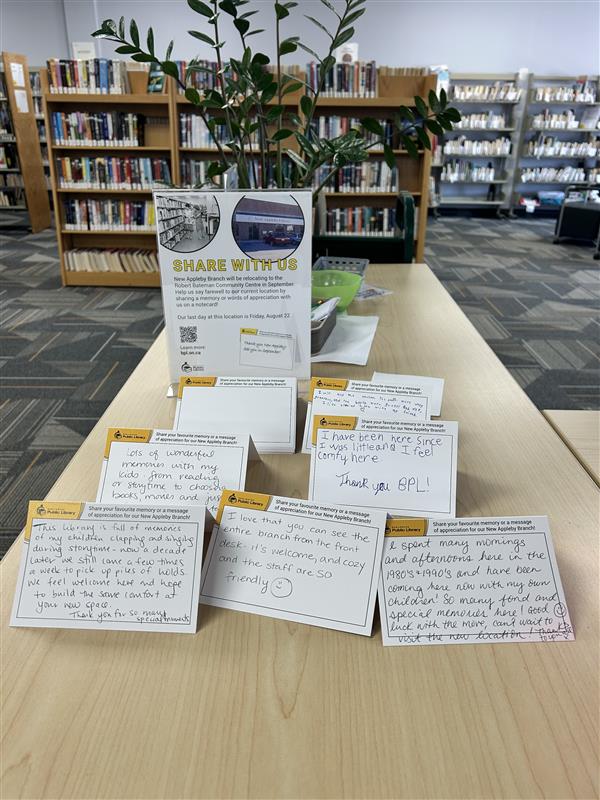 SHARE WITH US
New Appleby Branch will be relocating to the
Robert Bateman Community Centre in September.
Help us say farewell to our current location by
sharing a memory or words of appreciation with
us on a notecard!
Our last day at this location is Friday, August 22.
Learn more:
bpl.on.ca
Thank you New Appleby!
See you in September!
Share your favourite memory or a message
of appreciation for our New Appleby Branch!
Share your favourite memory or a message
of appreciation for our New Appleby Branch!
Public Library
Share your favourite memory or a message
of appreciation for our New Appleby Branch!
Lots of wonderful
memories with my
kids - from reading
or storytime to choosing
books, movies and just
Public Library
Share your favourite memory or a message
of appreciation for our New Appleby Branch!
I have been here since
I was little and I feel
comfy here
Thank you BPL!
Public Library
Share your favourite memory or a message
of appreciation for our New Appleby Branch!
This library is full of memories
of my children clapping and singing
during storytime - now a decade
later we still come a few times
a week to pick up piles of holds.
We feel welcome here and hope
to build the same comfort at
your new space.
Thank you for so many
special moments
Public Library
Share your favourite memory or a message
of appreciation for our New Appleby Branch!
I love that you can see the
entire branch from the front
desk - it's welcome, and cozy
and the staff are so
friendly
Public Library
Share your favourite memory or a message
of appreciation for our New Appleby Branch!
I spent many mornings
and afternoons here in the
1980's & 1990's and have been
coming here now with my own
children! So many fond and
special memories here! Good
luck with the move, can't wait to
visit the new location! Thank
you